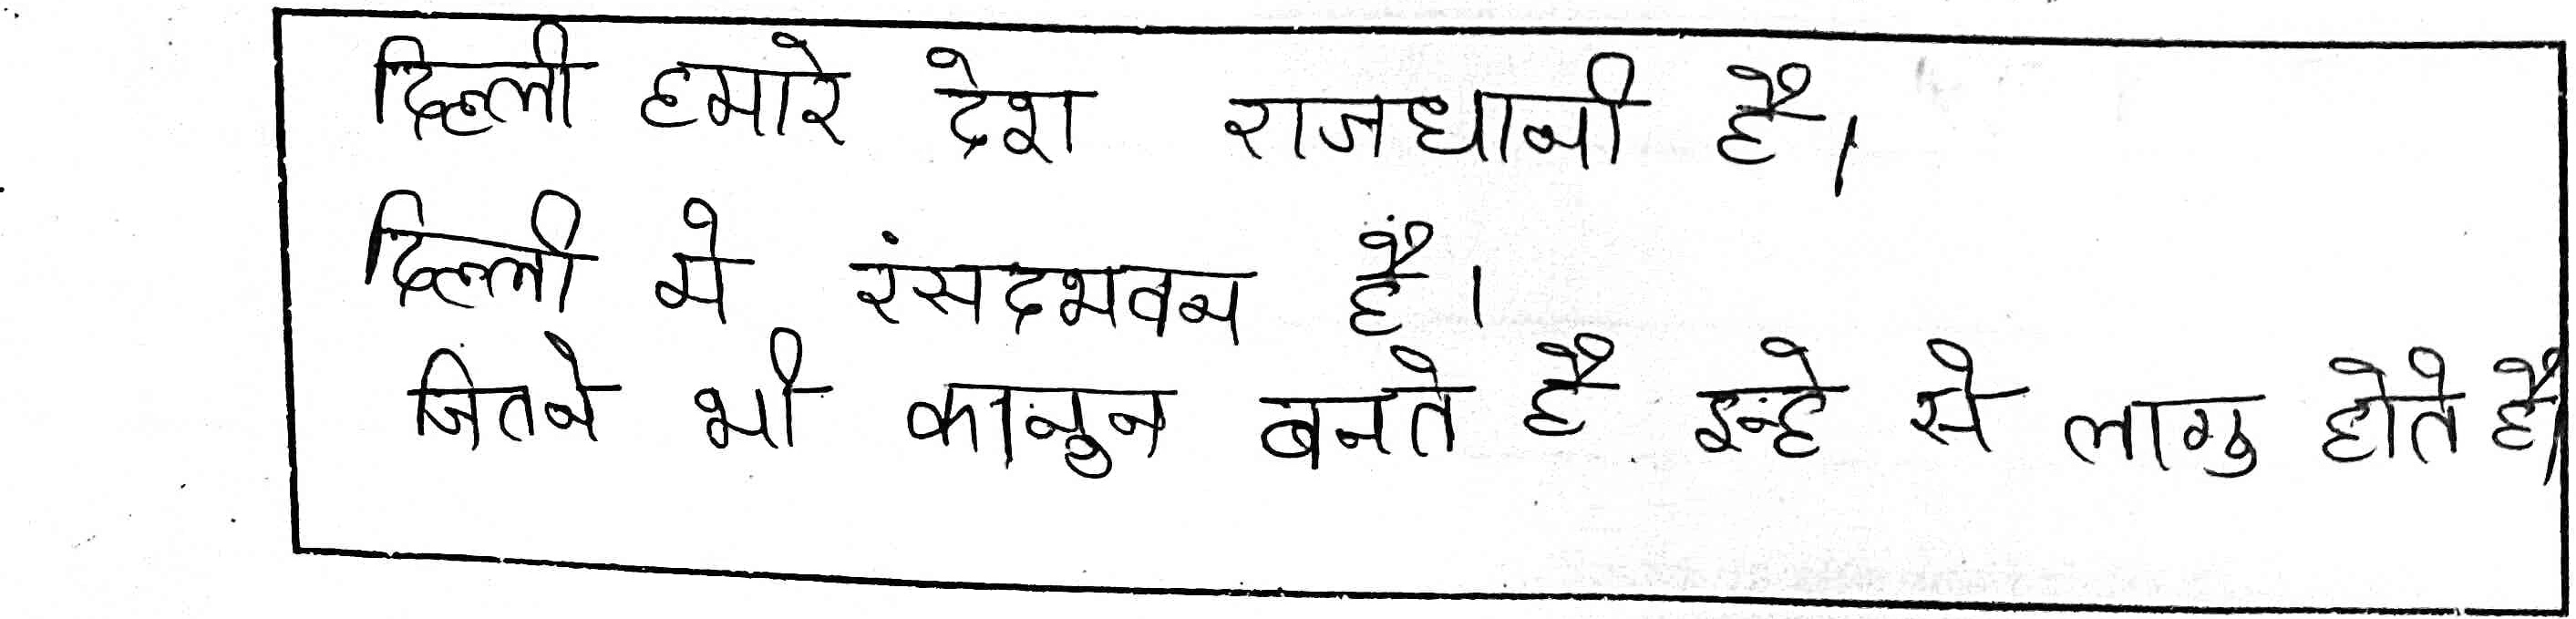 दिल्ली हमारे देश राजधानी है।
दिल्ली मे रंसदभवन हैं।
जितने भी कानुन बनते है इन्हे से लागु होते है।